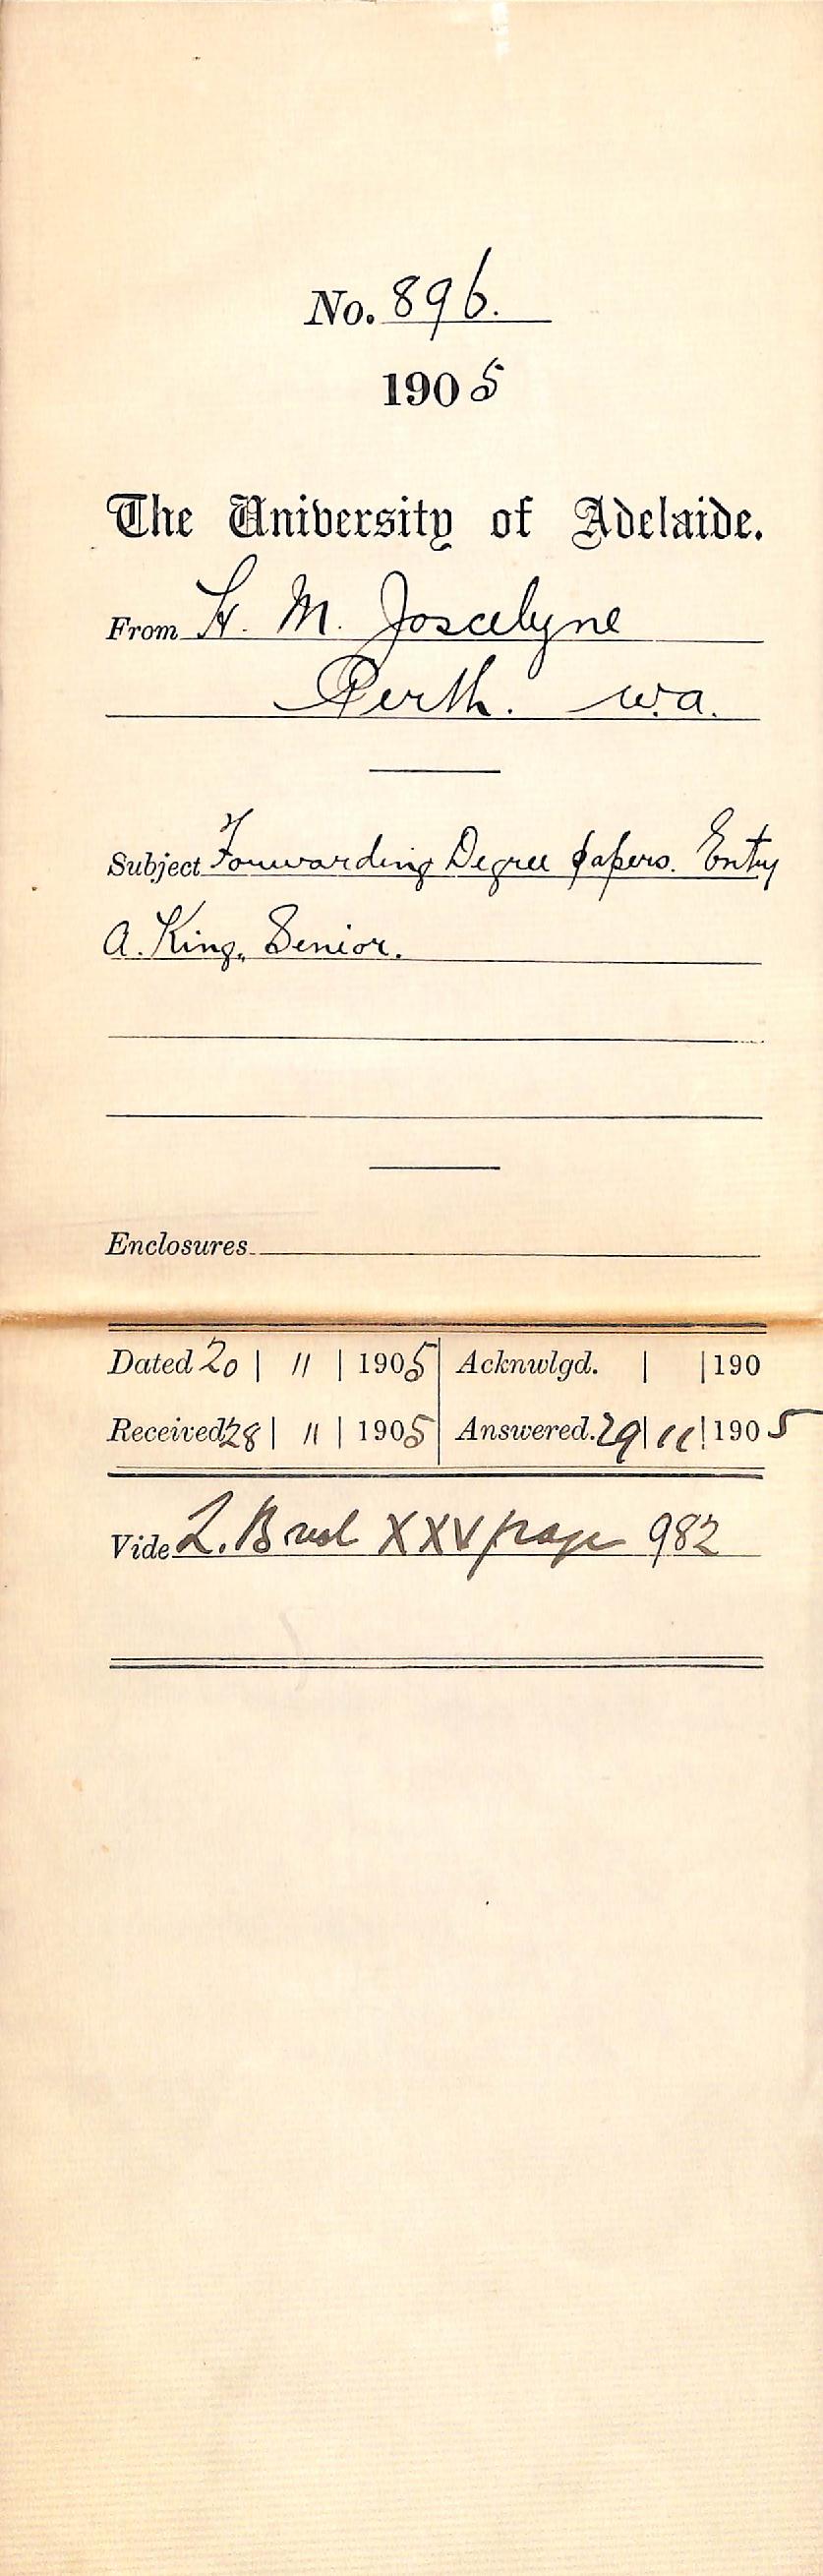 No. 896.
1905
The University of Adelaide.
From H. M. Joscelyne
Perth. W.A.
Subject Forwarding Degree papers. Entry
A. King, Senior.
Enclosures
Dated 20 | 11 | 1905 Acknwlgd. | | 190
Received 28 | 11 | 1905 Answered. 29 | 11 | 1905
Vide L. XXV page 982